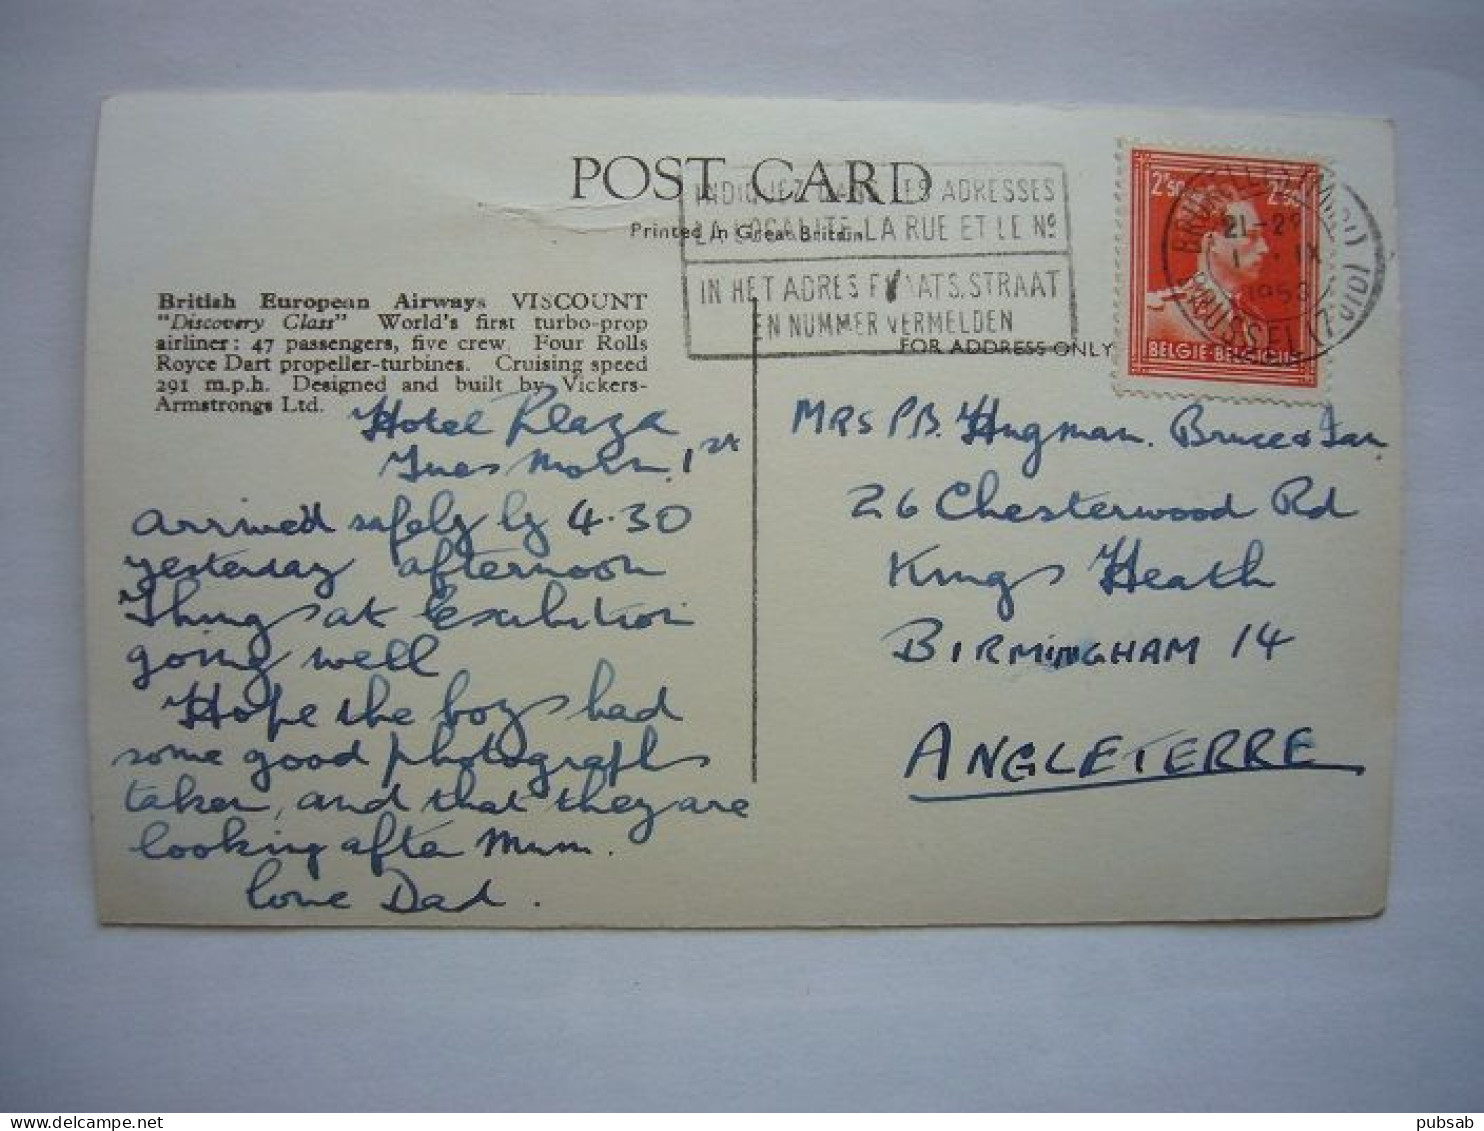 POST CARD
Printed in Great Britain
INDIQUEZ DANS LES ADRESSES
LA LOCALITE LA RUE ET LE Nº
IN HET ADRES PLAATS, STRAAT
EN NUMMER VERMELDEN
2F50 2F50
21-22
1 IX
1953
BRUSSEL (ZUID)
BELGIE-BELGIQUE
British European Airways VISCOUNT
"Discovery Class" World's first turbo-prop
airliner: 47 passengers, five crew. Four Rolls
Royce Dart propeller-turbines. Cruising speed
291 m.p.h. Designed and built by Vickers-
Armstrongs Ltd.
Hotel Plaza
Tues Morn. 1st
Arrived safely by 4.30
yesterday afternoon
Things at Exibition
going well
Hope the boys had
some good photographs
taken, and that they are
looking after Mum.
love Dad.
FOR ADDRESS ONLY
MRS P.B. Hugman. Bruce & Ian.
26 Chesterwood Rd
Kings Heath
BIRMINGHAM 14
ANGLETERRE
pubsab